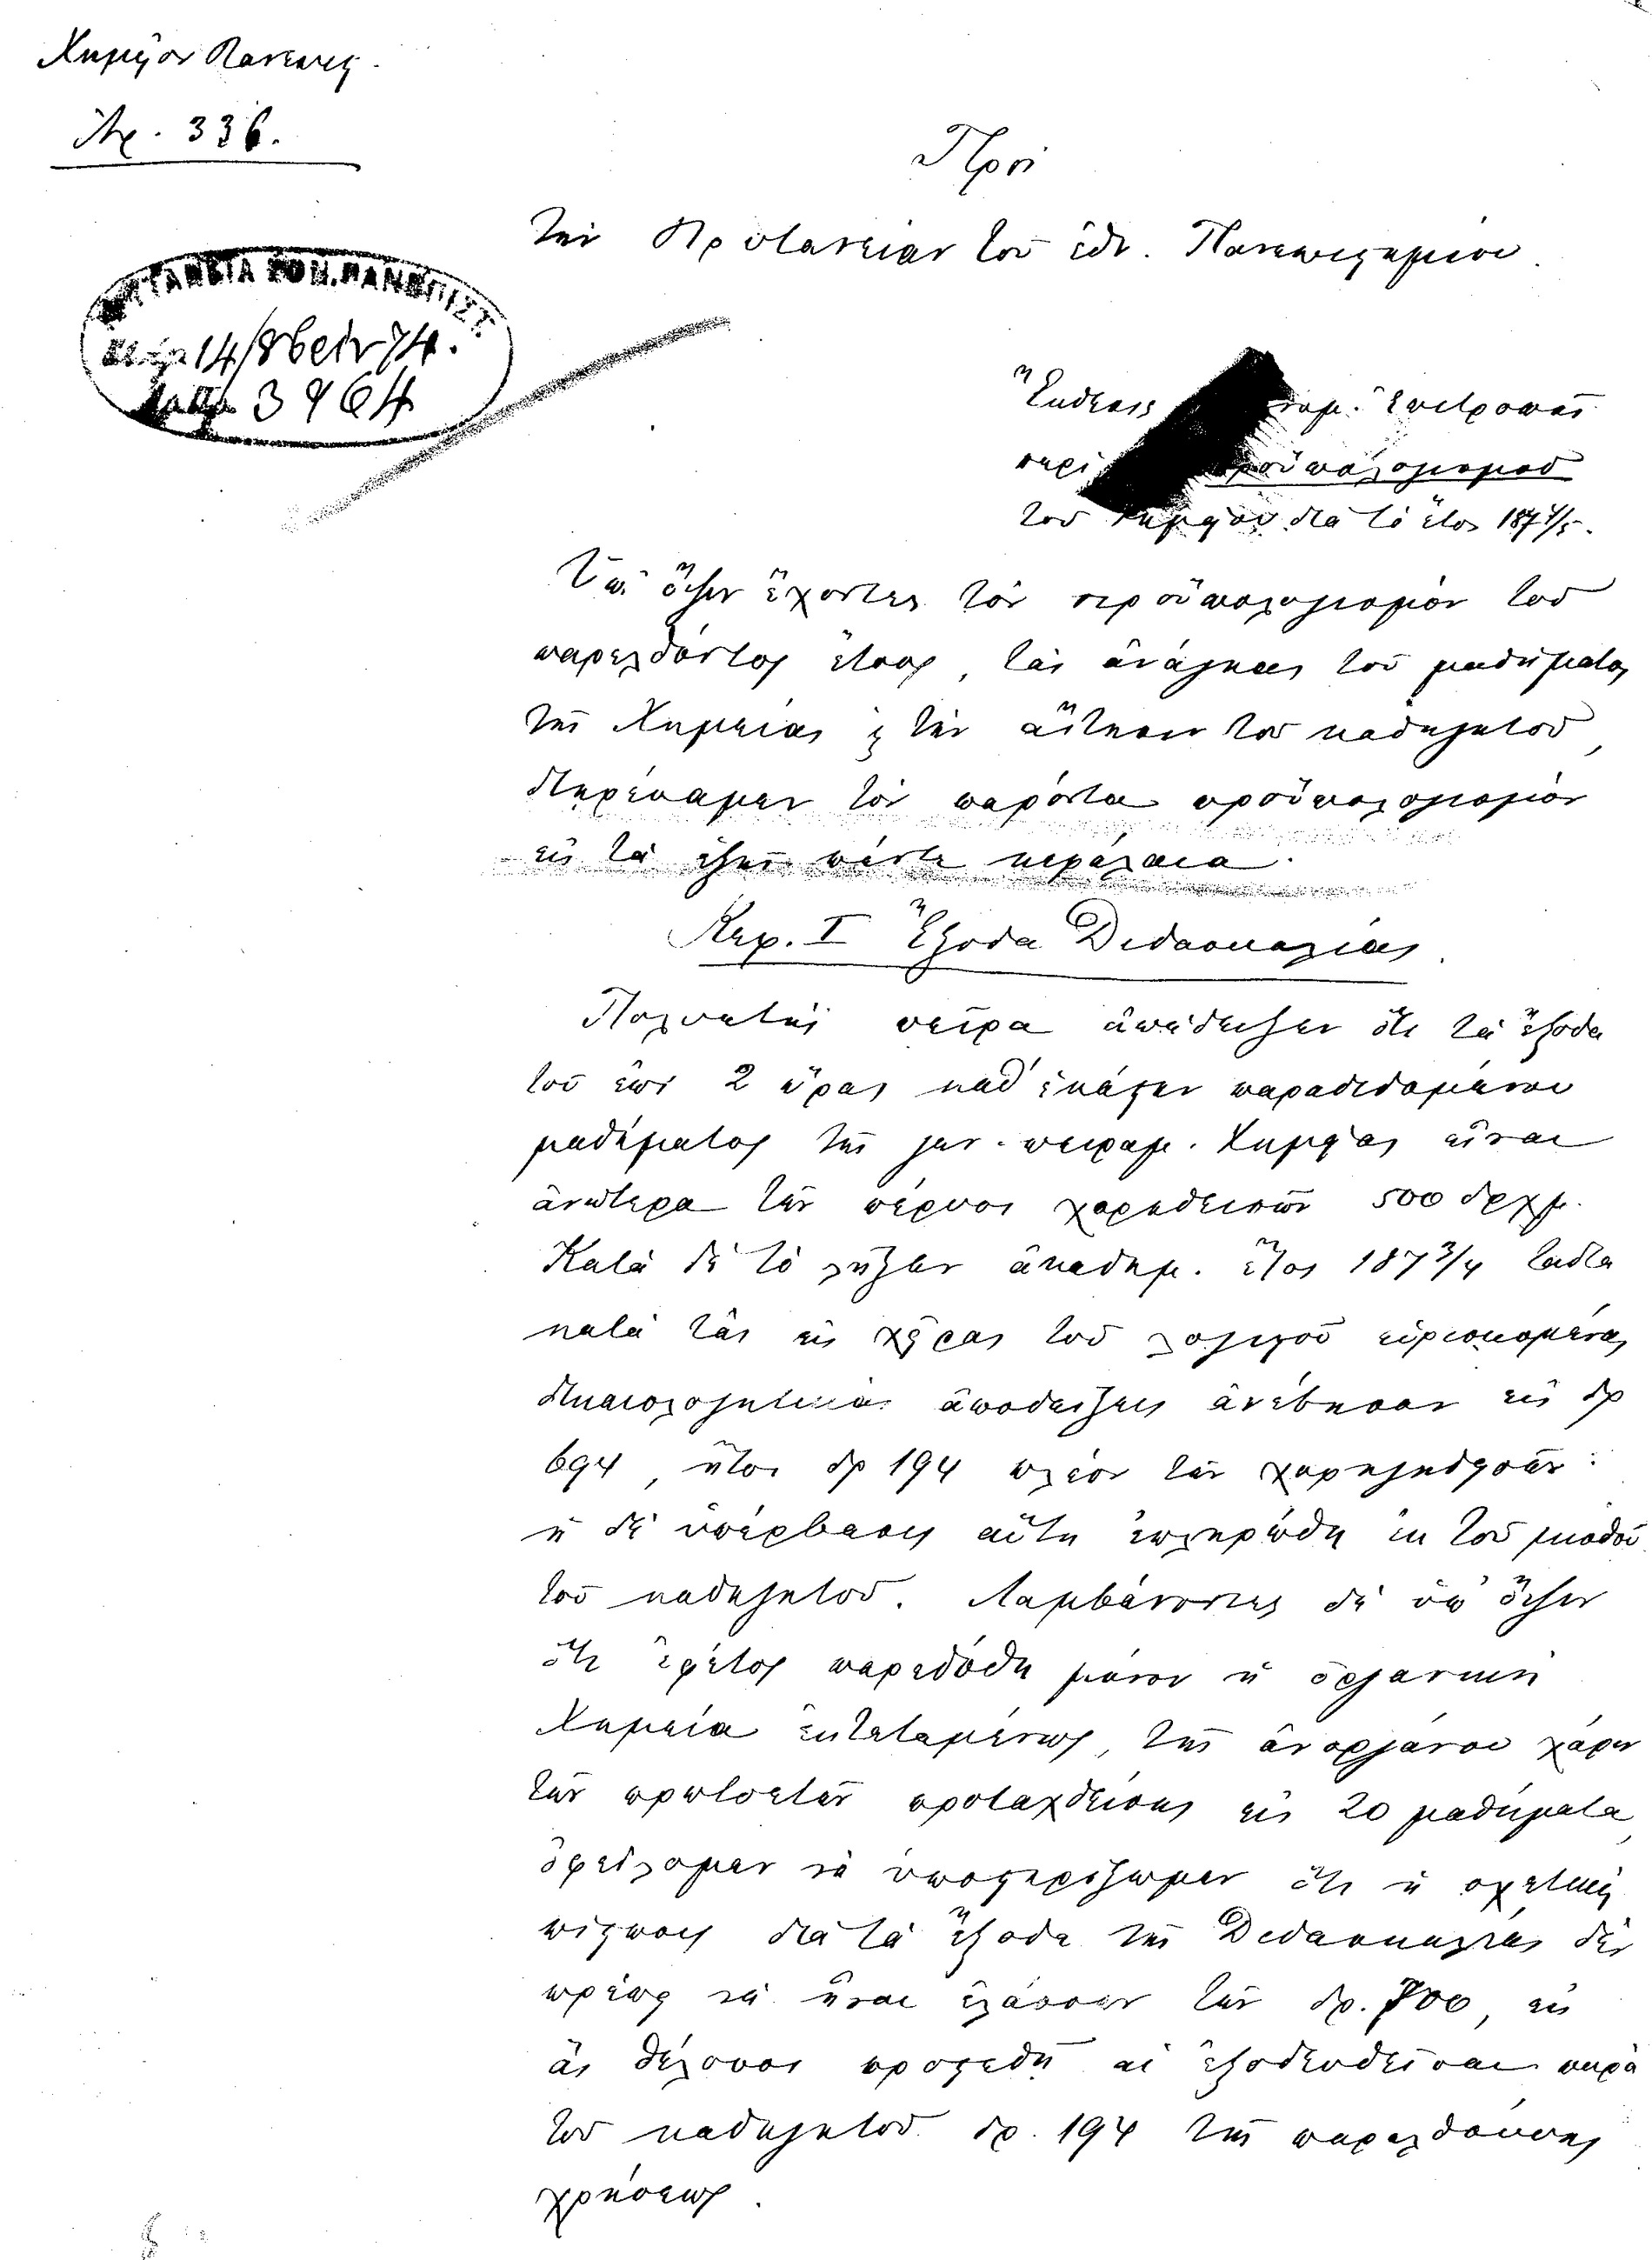 Χημεῖον Πανεπιστ.
Ἀρ. 336.
Πρὸς
τὴν Πρυτανείαν τοῦ ἐθν. Πανεπιστημίου.
ΠΡΥΤΑΝΕΙΑ ΤΟΥ Ν. ΠΑΝΕΠΙΣΤ.
14/8βρίου 74.
3964
Ἔκθεσις Ἐπιτροπῆς
περὶ προϋπολογισμοῦ
τοῦ Χημείου διὰ τὸ ἔτος 1874/5.
Ὑπ' ὄψιν ἔχοντες τὸν προϋπολογισμὸν τοῦ
παρελθόντος ἔτους, τὰς ἀνάγκας τοῦ μαθήματος
τῆς Χημείας ϗ τὴν αἴτησιν τοῦ καθηγητοῦ,
διῃρέσαμεν τὸν παρόντα προϋπολογισμὸν
εἰς τὰ ἑξῆς πέντε κεφάλαια.
Κεφ. I Ἔξοδα Διδασκαλίας.
Πολυετὴς πεῖρα ἀπέδειξεν ὅτι τὰ ἔξοδα
τοῦ ἐπὶ 2 ὥρας καθ' ἑκάστην παραδιδομένου
μαθήματος τῆς γεν. πειραμ. Χημείας εἶναι
ἀνώτερα τῶν πέρυσι χορηγηθεισῶν 500 δρχμ.
Κατὰ δὲ τὸ λῆξαν ἀκαδημ. ἔτος 1873/4 ταῦτα
κατὰ τὰς εἰς χεῖρας τοῦ λογιστοῦ εὑρισκομένας
δικαιολογητικὰς ἀποδείξεις ἀνέβησαν εἰς δρ
694, ἤτοι δρ 194 πλέον τῶν χορηγηθεισῶν:
ἡ δὲ ὑπέρβασις αὕτη ἐπληρώθη ἐκ τοῦ μισθοῦ
τοῦ καθηγητοῦ. Λαμβάνοντες δὲ ὑπ' ὄψιν
ὅτι ἐφέτος παρεδόθη μόνον ἡ ὀργανικὴ
Χημεία ἐκτεταμένως, τῆς ἀνοργάνου χάριν
τῶν πρωτοετῶν προταχθείσης εἰς 20 μαθήματα,
ὀφείλομεν νὰ ὑποστηρίξωμεν ὅτι ἡ σχετικὴ
πίστωσις διὰ τὰ ἔξοδα τῆς Διδασκαλίας δὲν
πρέπει νὰ ἦναι ἐλάσσων τῶν δρ. 700, εἰς
ἃς θέλουσι προστεθῆ αἱ ἐξοδευθεῖσαι παρὰ
τοῦ καθηγητοῦ δρ. 194 τῆς παρελθούσης
χρήσεως.